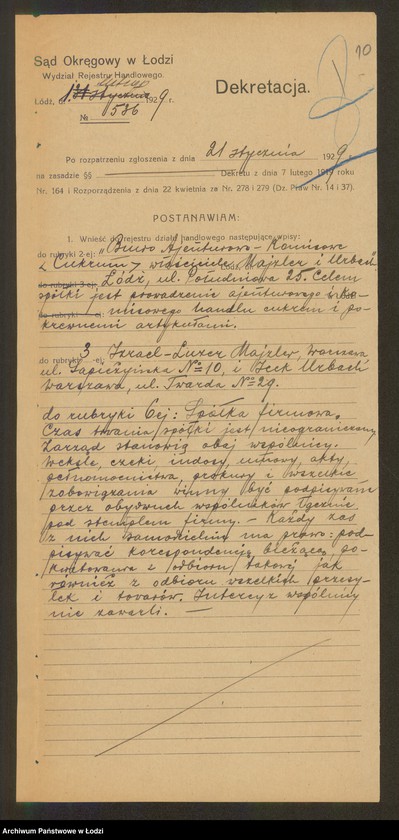 10
Sąd Okręgowy w Łodzi
Wydział Rejestru Handlowego.
lutego
Łódź, d. 1 stycznia 1929 r.
№ 586
Dekretacja.
Po rozpatrzeniu zgłoszenia z dnia 21 stycznia 1929 r.
na zasadzie §§ Dekretu z dnia 7 lutego 1919 roku
Nr. 164 i Rozporządzenia z dnia 22 kwietnia ze Nr. 278 i 279 (Dz. Praw Nr. 14 i 37).
POSTANAWIAM:
1. Wnieść do rejestru działu handlowego następujące wpisy:
do rubryki 2-ej: „Biuro Ajenturowo-Komisowe
„Cukrum", właściciele Majzler i Urbach"
do rubryki 3-ej Łódź, ul. Południowa 25. Celem
spółki jest prowadzenie ajenturowego i ko-
do rubryki misowego handlu cukrem i po-
krewnemi artykułami.
do rubryki 3 -ej Izrael-Luzer Majzler, Warszawa
ul. Sapieżyńska №10, i Icek Urbach
Warszawa, ul. Twarda №29.
do rubryki 6ej: Spółka firmowa.
Czas trwania spółki jest nieograniczony
Zarząd stanowią obaj wspólnicy.
Weksle, czeki, indosy, umowy, akty,
pełnomocnictwa, prokury i wszelkie
zobowiązania winny być podpisywane
przez obydwuch wspólników łącznie
pod stemplem firmy. – Każdy zaś
z nich samodzielnie ma prawo: pod-
pisywać korespondencję bieżącą, po-
kwitowania z odbioru takowej jak
również z odbioru wszelkich przesy-
łek i towarów. Intercyz wspólnicy
nie zawarli. —
Archiwum Państwowe w Łodzi